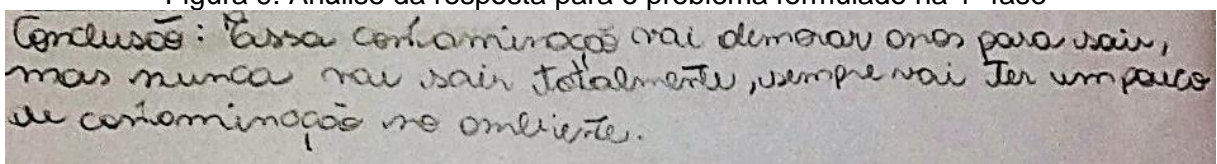 Figura 9: Análise da resposta para o problema formulado na 1ª fase
Conclusão: Essa contaminação vai demorar anos para sair,
mas nunca vai sair totalmente, sempre vai ter um pouco
de contaminação no ambiente.